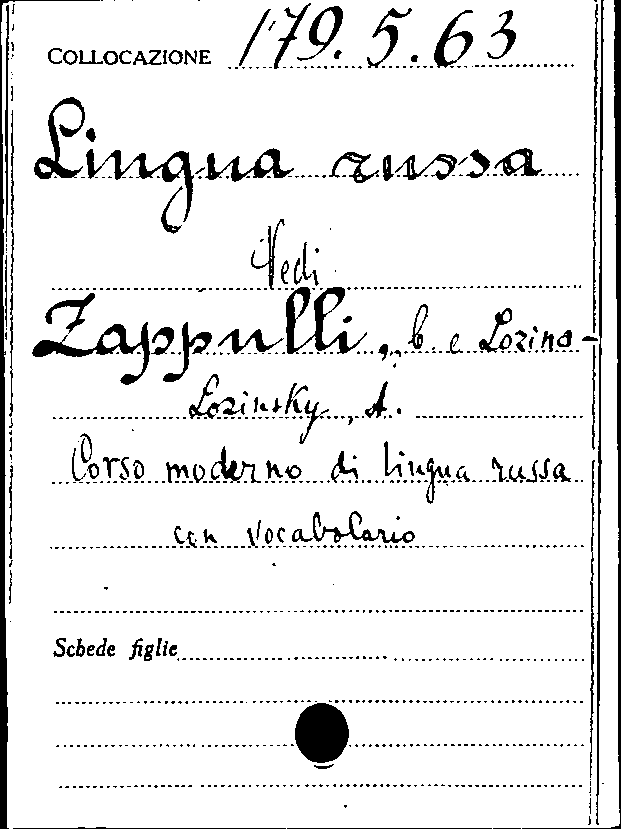 COLLOCAZIONE 179.5.63
Lingua russa
Vedi
Zappulli, b. e Lozina-
Lozinsky, A.
Corso moderno di lingua russa
con vocabolario
Schede figlie